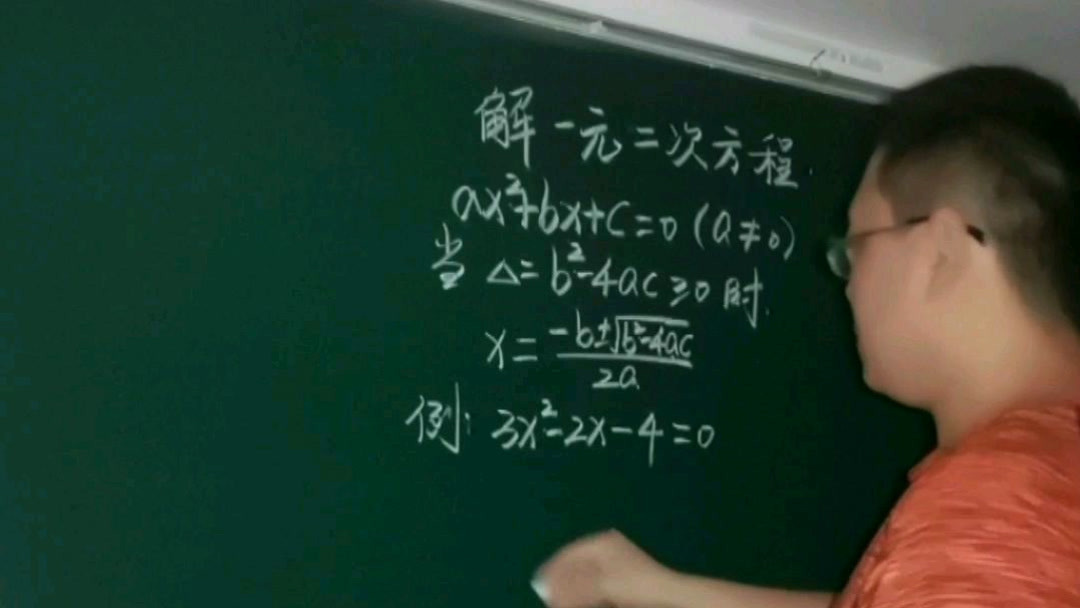 解一元二次方程.
ax²+bx+c=0 (a≠0)
当 Δ=b²-4ac≥0时.
x=\frac{-b±\sqrt{b²-4ac}}{2a}
例: 3x²-2x-4=0